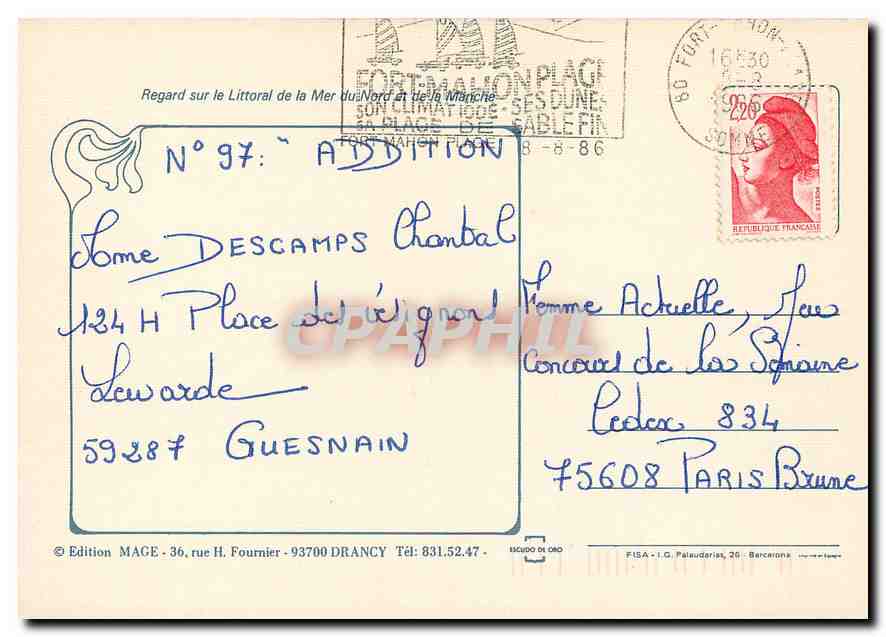 FORT-MAHON PLAGE
SON CLIMAT IODE - SES DUNES
SA PLAGE DE SABLE FIN
FORT MAHON PLAGE 8-8-86
80 FORT-MAHON-PLAGE
16H30
8-8
1986
SOMME
2,20
POSTES
REPUBLIQUE FRANÇAISE
Regard sur le Littoral de la Mer du Nord et de la Manche
N° 97: " ADDITION
Mme DESCAMPS Chantal
124 H Place des
Lewarde
59287 GUESNAIN
Femme Actuelle, Jeu
Concours de la Semaine
Cedex 834
75608 PARIS Brune
CPAPHIL
© Edition MAGE - 36, rue H. Fournier - 93700 DRANCY Tél: 831.52.47 -
ESCUDO DE ORO
FISA - I.G. Palaudarias, 26 - Barcelona